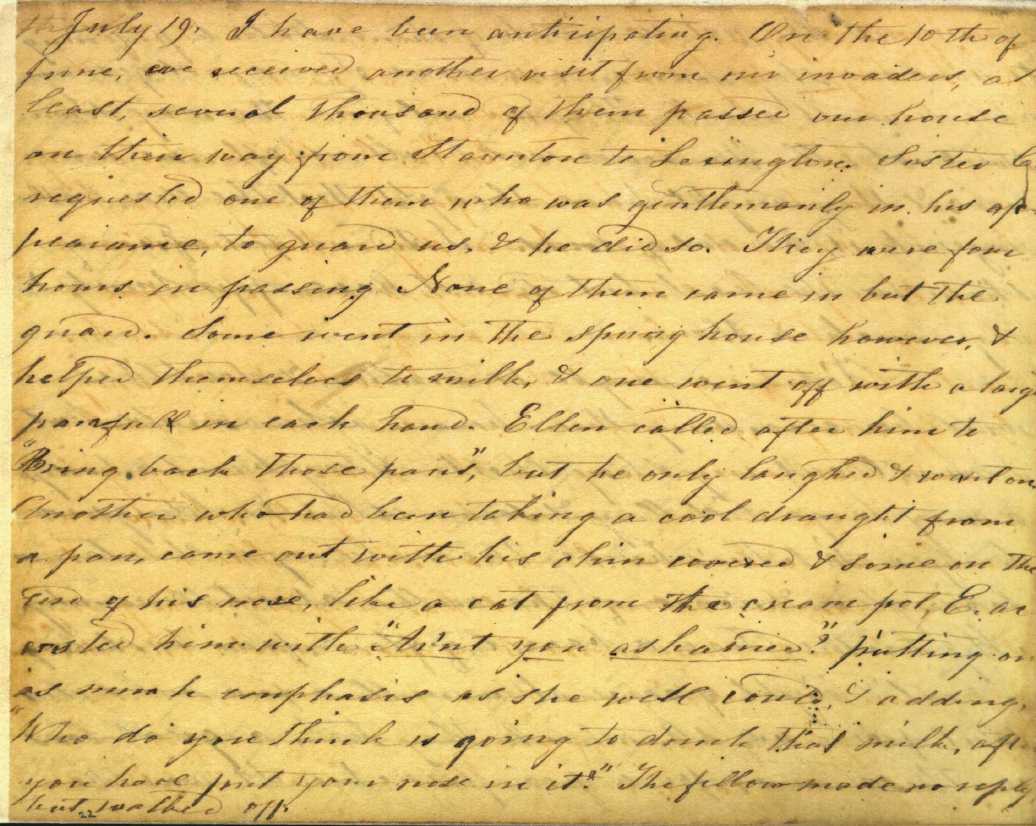 July 19. I have been anticipating. On the 10th of
June, we received another visit from our invaders, at
least, several thousand of them passed our house
on their way from Staunton to Lexington. Sister C
requested one of them who was gentlemanly in his ap
pearance, to guard us, & he did so. They were four
hours in passing. None of them came in but the
guard. Some went in the spring house however, &
helped themselves to milk, & one went off with a large
pan full in each hand. Ellen called after him to
"Bring back those pans", but he only laughed & went on
Another who had been taking a cool draught from
a pan, came out with his chin covered & some on the
end of his nose, like a cat from the cream pot, E. ac
costed him with "Ain't you ashamed"? putting on
as much emphasis as she well could, & adding,
"Who do you think is going to drink that milk, after
you have put your nose in it?" The fellow made no reply
but walked off.
22